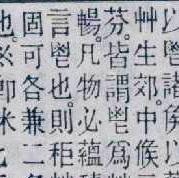 以鬯諸侯以
艸生郊中倏
芬皆謂鬯爲
暢凡物必蘊
言鬯也則秬
固可各兼二
也
卽米